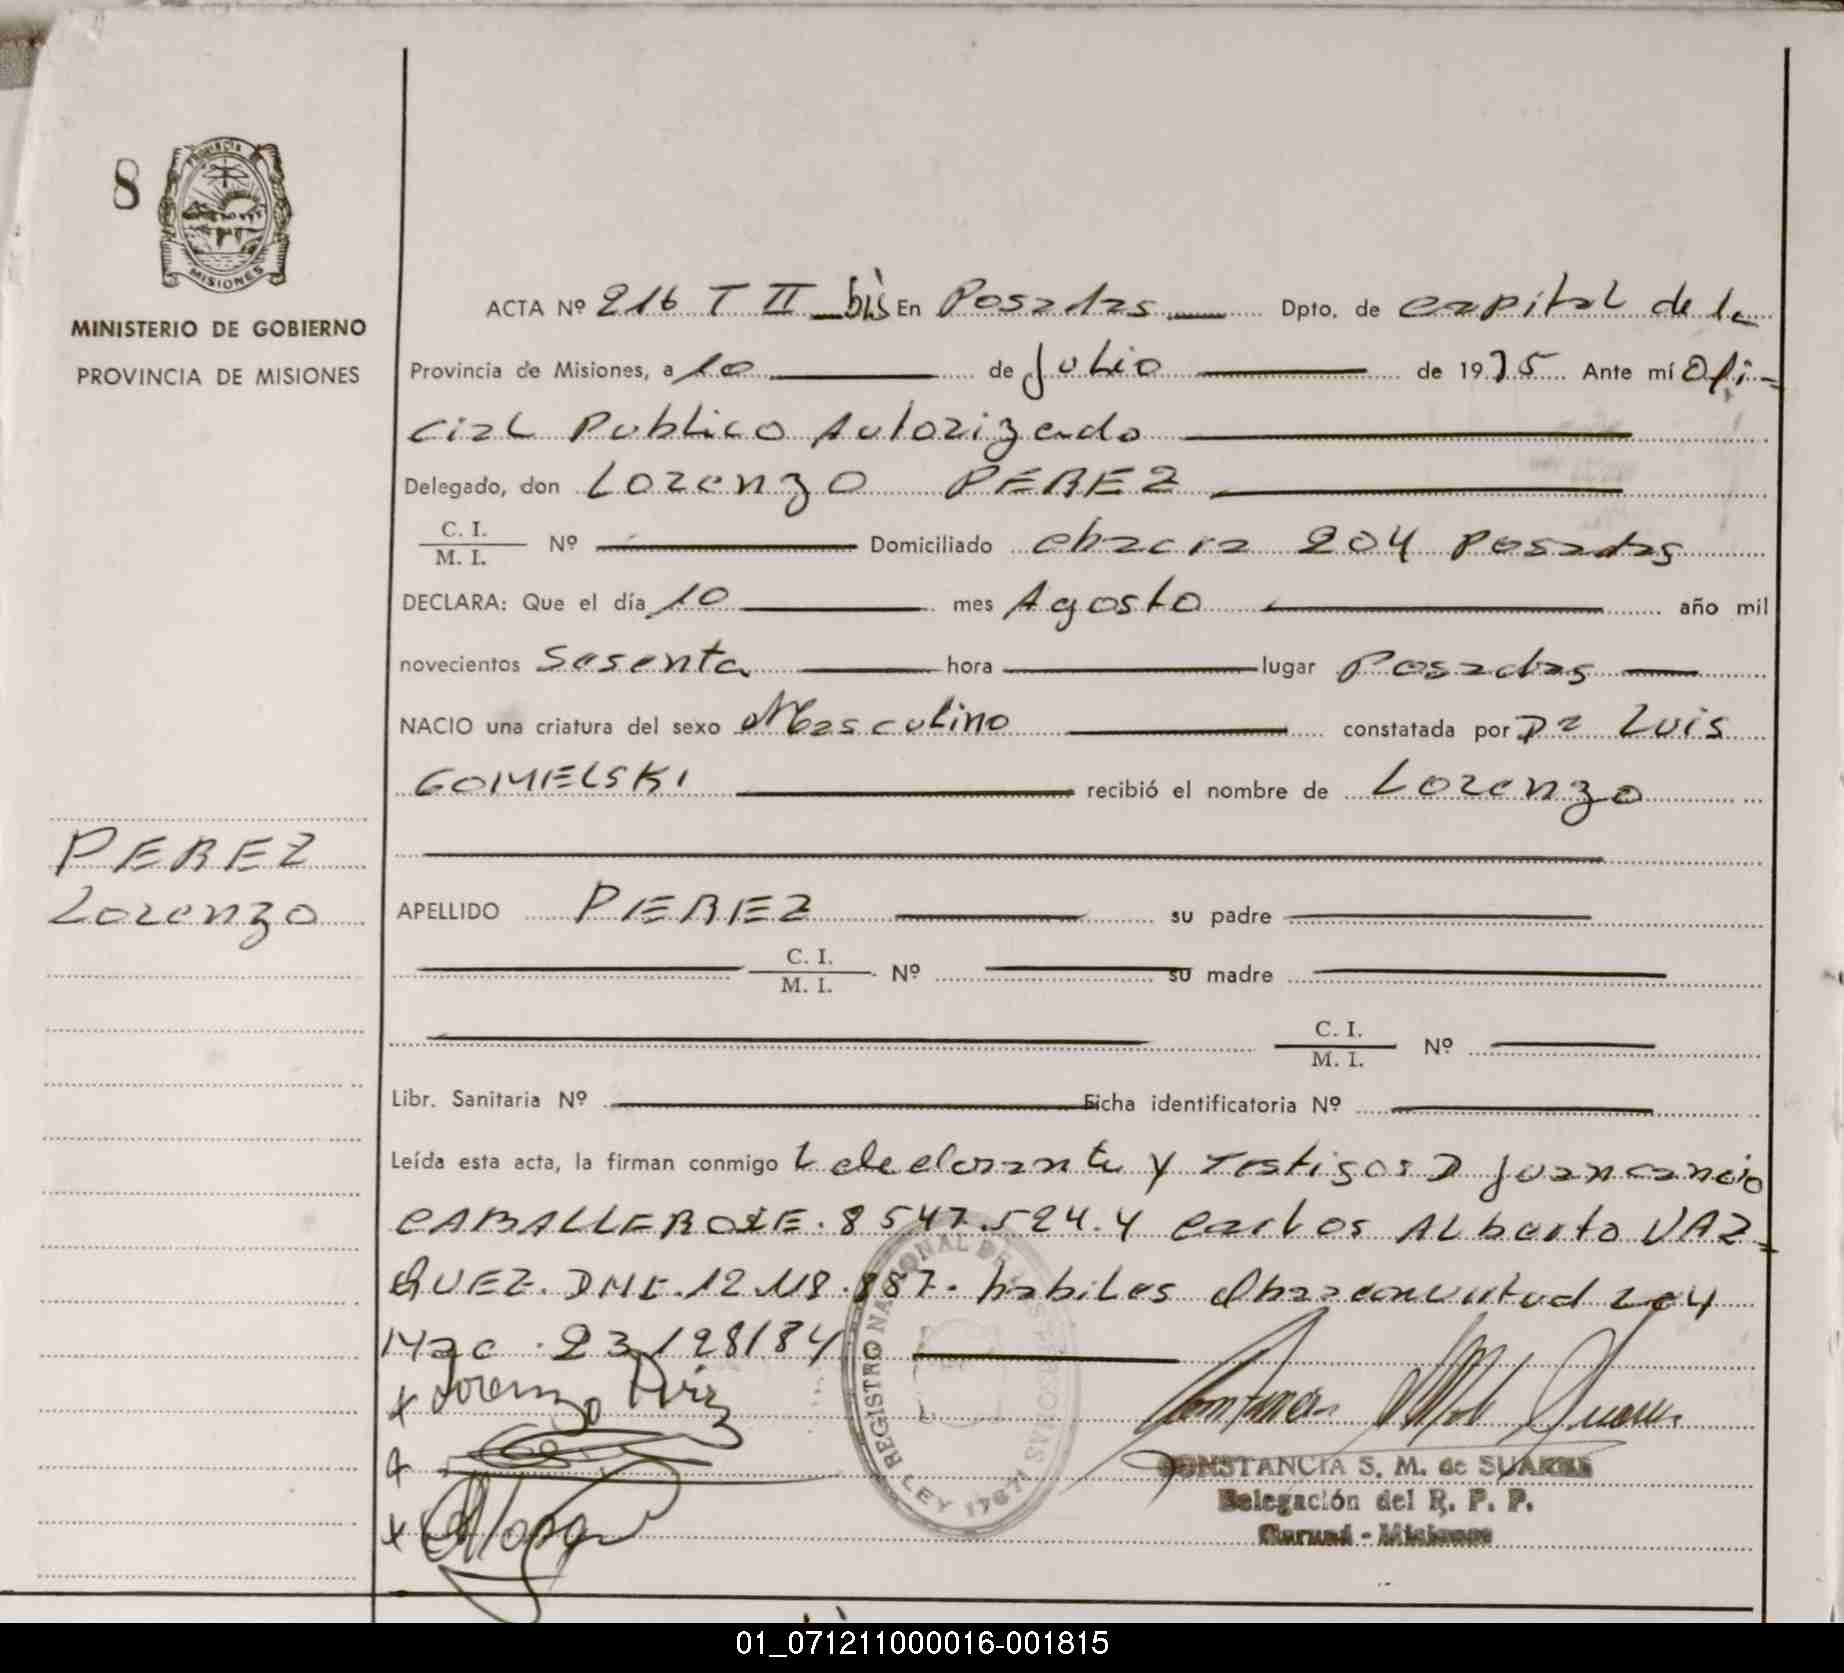 8
PROVINCIA
MISIONES
MINISTERIO DE GOBIERNO
PROVINCIA DE MISIONES
ACTA Nº 216 T II bis En Posadas Dpto. de capital de la
Provincia de Misiones, a 10 de Julio de 1975 Ante mí Ofi-
cial Publico Autorizado
Delegado, don Lorenzo PEREZ
C. I.
M. I. Nº Domiciliado chacra 204 Posadas
DECLARA: Que el día 10 mes Agosto año mil
novecientos Sesenta hora lugar Posadas
NACIO una criatura del sexo Masculino constatada por Dr Luis
GOMELSKI recibió el nombre de Lorenzo
PEREZ
Lorenzo
APELLIDO PEREZ su padre
C. I.
M. I. Nº su madre
C. I.
M. I. Nº
Libr. Sanitaria Nº Ficha identificatoria Nº
Leída esta acta, la firman conmigo el declarante y Testigos D Juan cancio
CABALLERO LE. 8547.524. y Carlos Alberto VAZ-
QUEZ. DNI. 12.118.887. habiles 204
23128184
Lorenzo Perez
REGISTRO NACIONAL DE LAS PERSONAS
LEY 17671
CONSTANCIA S. M. de SUARES
Delegación del R. P. P.
Garuná - Misiones
01_071211000016-001815